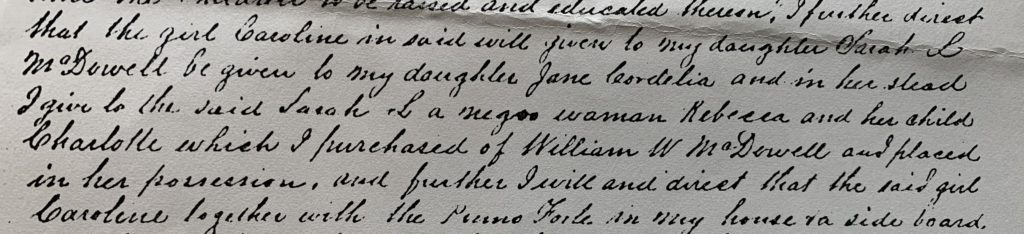 to be raised and educated thereon, I further direct
that the girl Caroline in said will given to my daughter Sarah L
McDowell be given to my daughter Jane Cordelia and in her stead
I give to the said Sarah L a negro woman Rebecca and her child
Charlotte which I purchased of William W McDowell and placed
in her possession, and further I will and direct that the said girl
Caroline together with the Piano Forte in my house & a side board.